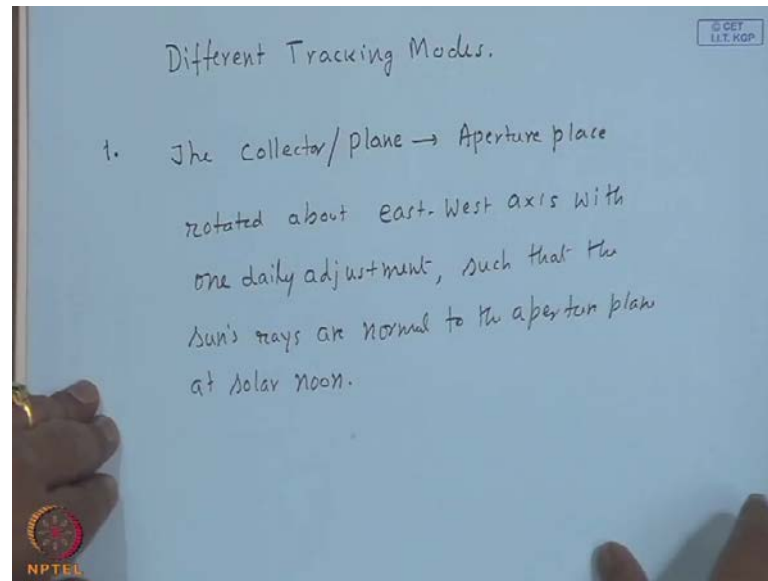 © CET
I.I.T. KGP
Different Tracking Modes.
1. The collector/plane → Aperture place
rotated about east-West axis with
one daily adjustment, such that the
sun's rays are normal to the aperture plane
at solar noon.
NPTEL